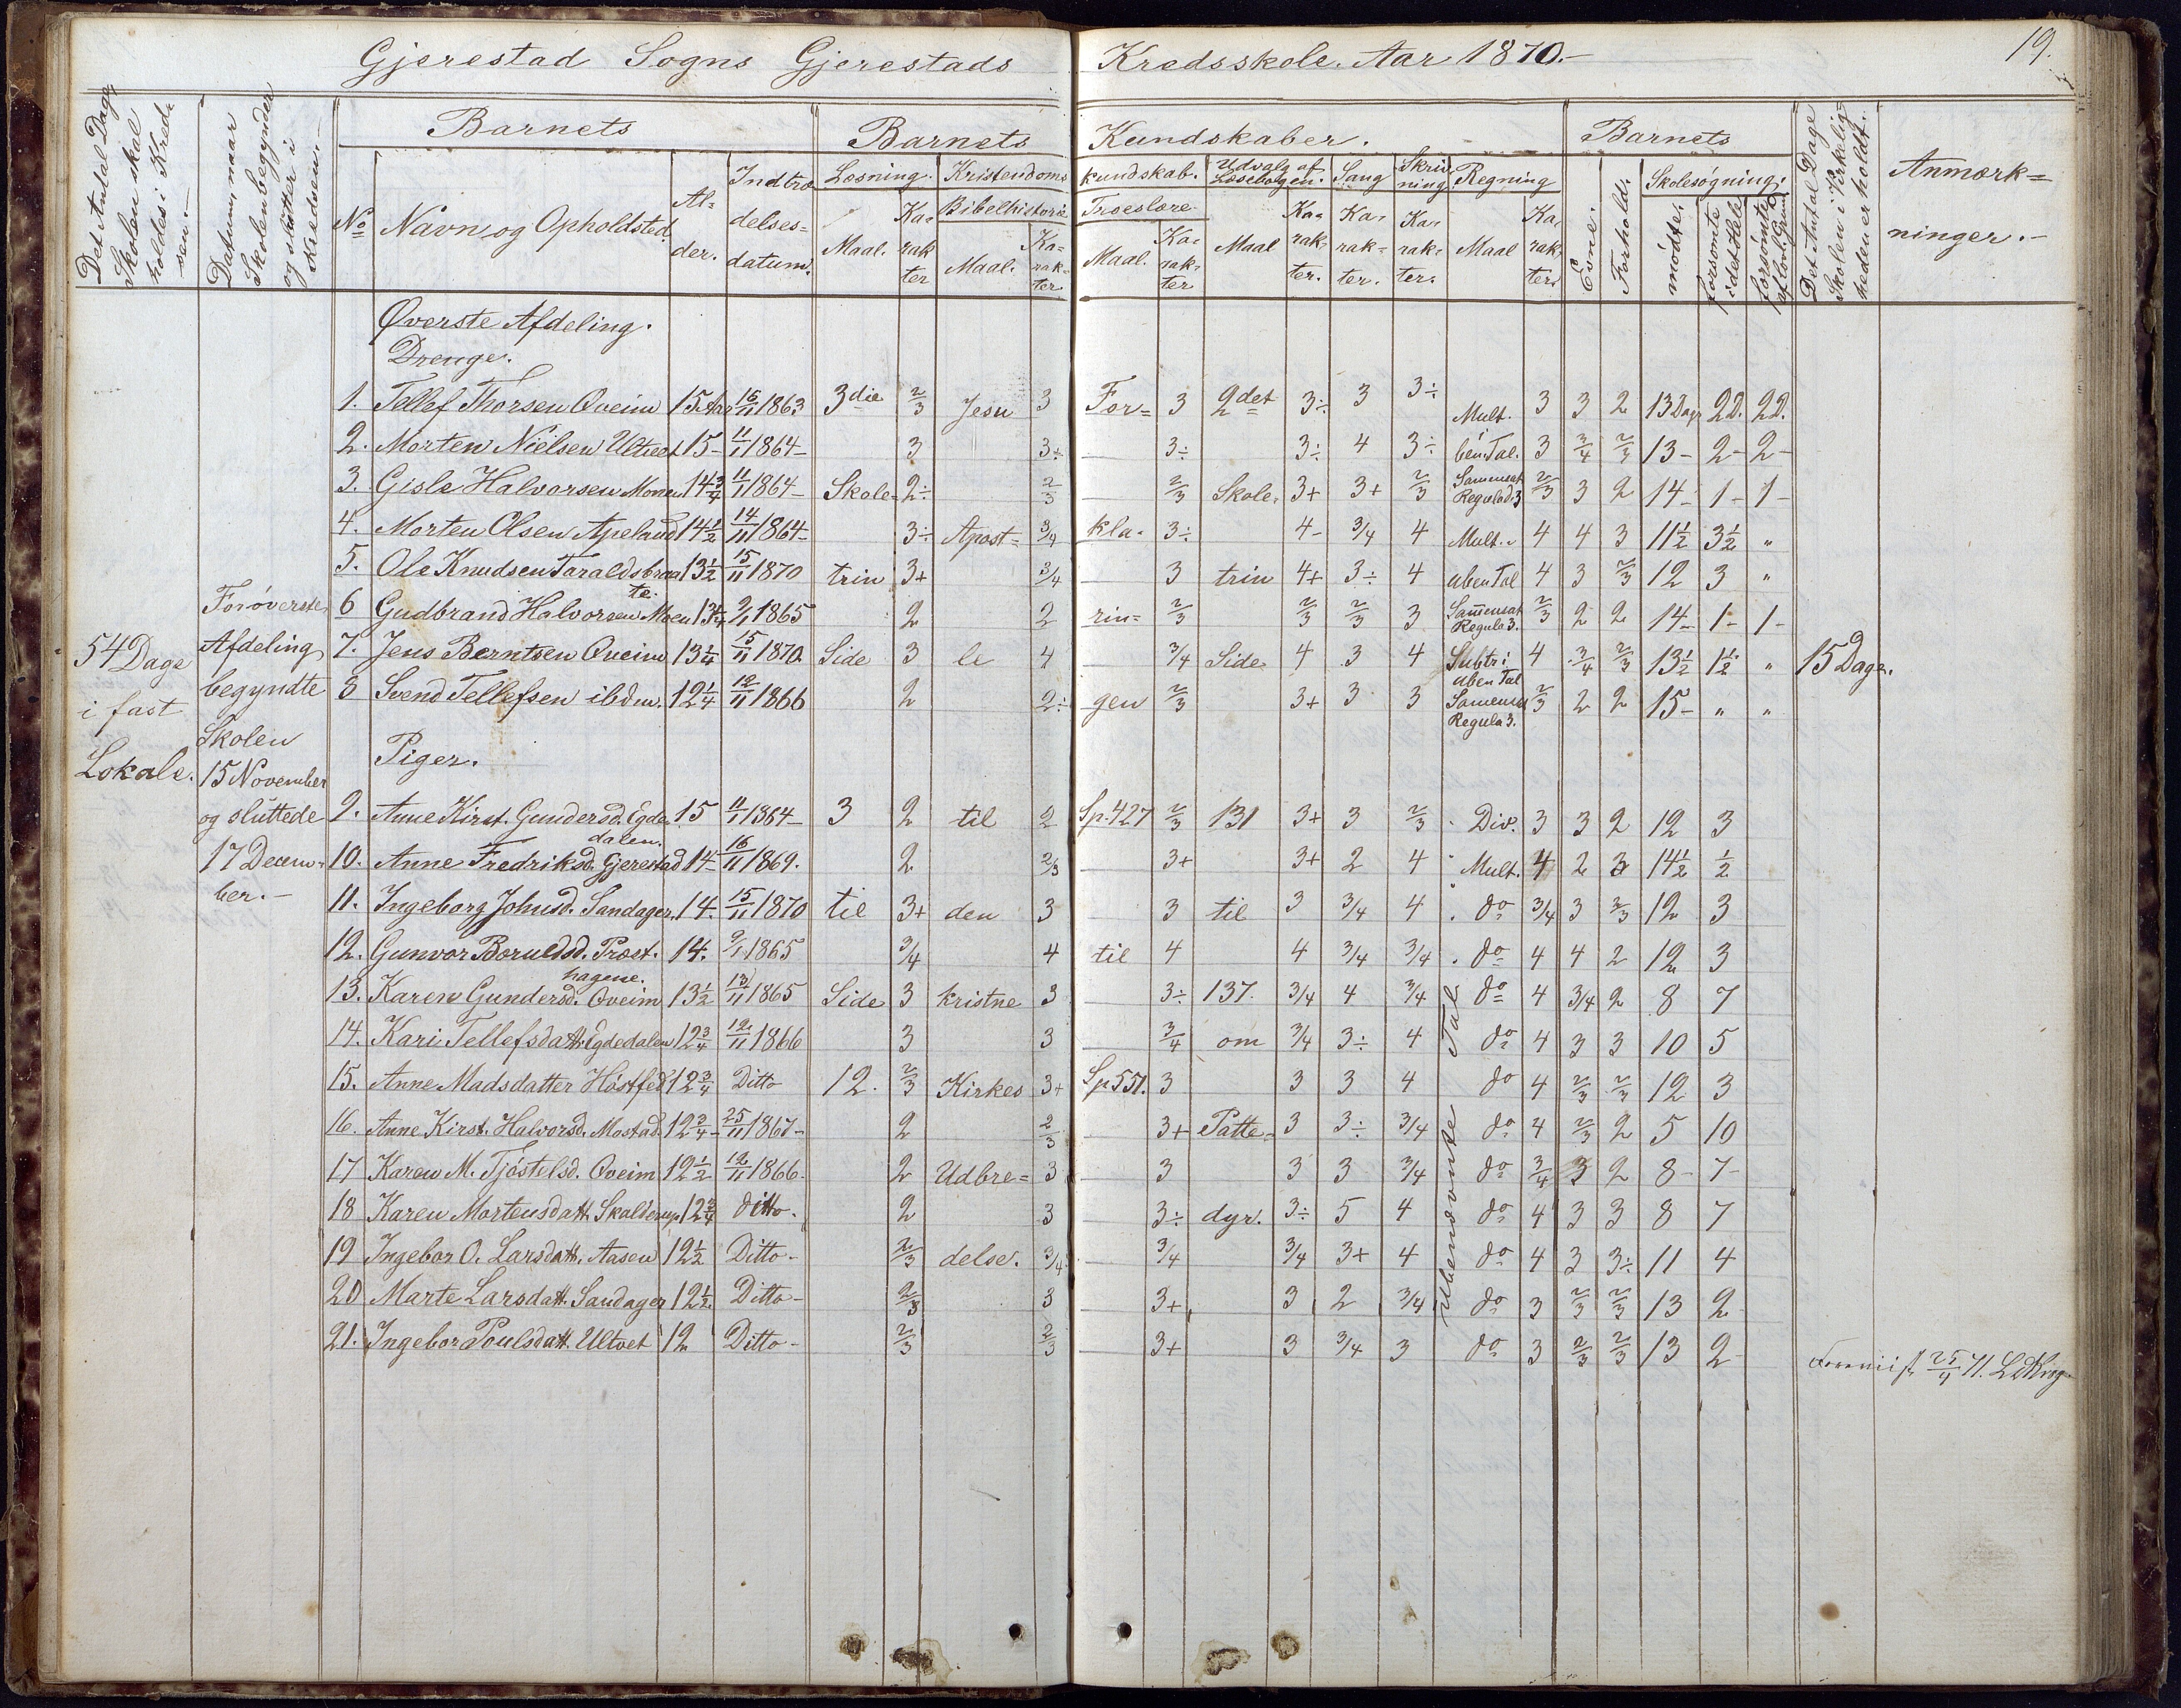 Gjerestad Sogns Gjerestads Kredsskole. Aar 1870.-
19.
Det Antal Dage,
Skolen skal
holdes i Kred-
sen.-
Datum, naar
Skolen begynder
og slutter i
Kredsen.-
Barnets
No
Navn og Opholdsted.
Al-
der.
Indtræ
delses=
datum.
Barnets Kundskaber.
Læsning.
Maal.
Ka-
rak
ter
Kristendoms kundskab.
Bibelhistorie
Maal.
Ka=
rak=
ter
Troeslære
Maal.
Ka-
rak-
ter
Udvalg af
Læsebogen.
Maal
Ka-
rak-
ter.
Sang
Ka-
rak-
ter.
Skriv
ning
Ka-
rak-
ter.
Regning
Maal
Ka-
rak-
ter
Barnets
Evne.
Forhold.
Skolesøgning.
mødte.
forsømte
i det Hele
forsømte
af lovl. Grund
Det Antal Dage
Skolen i Virkelig-
heden er holdt.
Anmærk=
ninger.-
54 Dage
i fast
Lokale.
For øverste
Afdeling
begyndte
Skolen
15 November
og sluttede
17 Decem=
ber.-
Øverste Afdeling.
Drenge.
1. Tellef Thorsen Qveim 15 Aar 16/11 1863 3die 2/3 Jesu 3 For= 3 2det 3÷ 3 3÷ Mult. 3 3 2 13 Dage 2D. 2D.
2. Morten Nielsen Ultvet 15- 11/1 1864- 3 3÷ 3÷ 3÷ 4 3÷ ben. Tal. 3 3/4 2/3 13- 2- 2-
3. Gisle Halvorsen Moen 14 3/4 11/1 1864- Skole= 2÷ 2/3 2/3 Skole= 3+ 3+ 2/3 Samensat Regulad. 3 2/3 3 2 14- 1- 1-
4. Morten Olsen Apelund 14 1/2 14/11 1864- 3÷ Apost= 3/4 kla- 3÷ 4- 3/4 4 Mult. 4 4 3 11 1/2 3 1/2 "
5. Ole Knudsen Taraldsbraa te. 13 1/2 15/11 1870 trin 3+ 3/4 3 trin 4+ 3÷ 4 uben Tal 4 3 2/3 12 3 "
6 Gudbrand Halvorsen Moen 13 1/4 9/1 1865 2 2 rin= 2/3 2/3 2/3 3 Samensat Regula 3. 2/3 2 2 14- 1- 1-
7. Jens Berntsen Qveim 13 1/4 15/11 1870 Side 3 le 4 3/4 Side 4 3 4 Subtr: uben Tal 4 3/4 2/3 13 1/2 1 1/2 " 15 Dage.
8 Svend Tellefsen ibdm. 12 1/4 12/11 1866 2 2÷ gen 2/3 3+ 3 3 Samensat Regula 3. 2/3 2 2 15- " "
Piger.
9. Anne Kirst. Gundersd. Egde dalen. 15 11/1 1864- 3 2 til 2 Sp. 427 2/3 131 3+ 3 2/3 Div. 3 3 2 12 3
10. Anne Fredriksd. Gjerestad 14- 16/11 1869. 2 2/3 3+ 3+ 2 4 Mult. 4 2 3 14 1/2 1/2
11. Ingeborg Johnsd. Sandager 14. 15/11 1870 til 3+ den 3 3 til 3 3/4 4 do 3/4 3 2/3 12 3
12. Gunvor Boruldsd. Præst- hagene. 14. 9/1 1865 3/4 4 til 4 4 3/4 3/4 do 4 4 2 12 3
13. Karen Gundersd. Qveim 13 1/2 13/11 1865 Side 3 kristne 3 3÷ 137. 3/4 4 3/4 do 4 3/4 2 8 7
14. Kari Tellefsdatt. Egdedalen 12 3/4 12/11 1866 3 3 3/4 om 3/4 3÷ 4 do 4 3 3 10 5
15. Anne Madsdatter Høstfed 12 3/4 Ditto 12. 2/3 Kirkes 3+ Sp 551. 3 3 3 4 do 4 2/3 2/3 12 3
16. Anne Kirst. Halvorsd. Mostad 12 3/4- 25/11 1867- 2 2/3 3+ Patte= 3 3÷ 3/4 do 4 2/3 2 5 10
17 Karen M. Tjøstelsd. Qveim 12 1/2 12/11 1866. 2 Udbre= 3 3 3 3 3/4 do 3/4 3 2 8- 7-
18 Karen Mortensdatt. Skalderup 12 3/4 ditto. 2 3 3÷ dyr. 3÷ 5 4 do 4 3 3 8 7
19 Ingebor O. Larsdatt. Aasen 12 1/2 Ditto- 2/3 delse. 3/4 3/4 3/4 3+ 4 do 4 3 3÷ 11 4
20 Marte Larsdatt. Sandager 12 1/2 Ditto- 2/3 3 3+ 3 2 3/4 do 3 2/3 2/3 13 2
21. Ingebor Poulsdatt. Ultvet 12 Ditto- 2/3 2/3 3+ 3 3/4 3 do 3 2/3 2/3 13 2
Ubenævnte Tal
71.